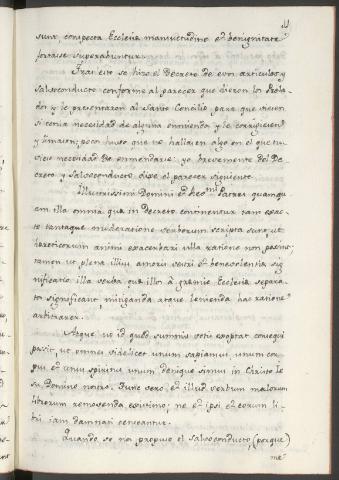 sunt conspecta Ecclesia mansuetudine et benignitate
fortasse superabuntur.
Tras esto se hizo el Decreto de esos articulos y
salvoconducto conforme al parecer que dieron los Prela
dos y le presentaron al Santo Concilio para que viesen
si tenia necesidad de alguna enmienda y le corrigiesen
y limasen; poco hubo que se hallase en algo en el que tu
viese necesidad de enmendarse yo brevemente del De
creto y Salvoconducto dixe el parecer siguiente.
Illustrissimi Domini et Rev.mi Patres quamqu
am illa omnia que in Decreto continentur tam exac
te tantaque moderatione verborum scripta sunt, ut
haereticorum animi exacerbari ulla ratione non possint
tamen ut plena illius amoris vestri et benevolentiae sig
nificatio illa verba que illos à gremio Ecclesiae separa
tos significant, mitiganda atque lenienda hac ratione
arbitrarer.
Atque ut id quod summis votis exoptat consequi
possit, ut omnes videlicet unum sapiamus unum cor
pus et unus spiritus unum denique simus in Christo Ie
su Domino nostro. Tunc vero et illud verbum malorum
librorum removenda existimo; ne et ipsi et eorum li
bri iam damnati censeantur.
Quando se nos propuso el salvoconducto, (porque)
me